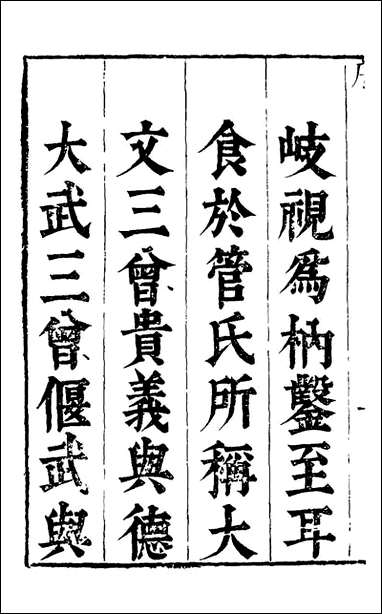 歧視爲枘鑿至耳
食於管氏所稱大
文三曾貴義與德
大武三曾偃武與